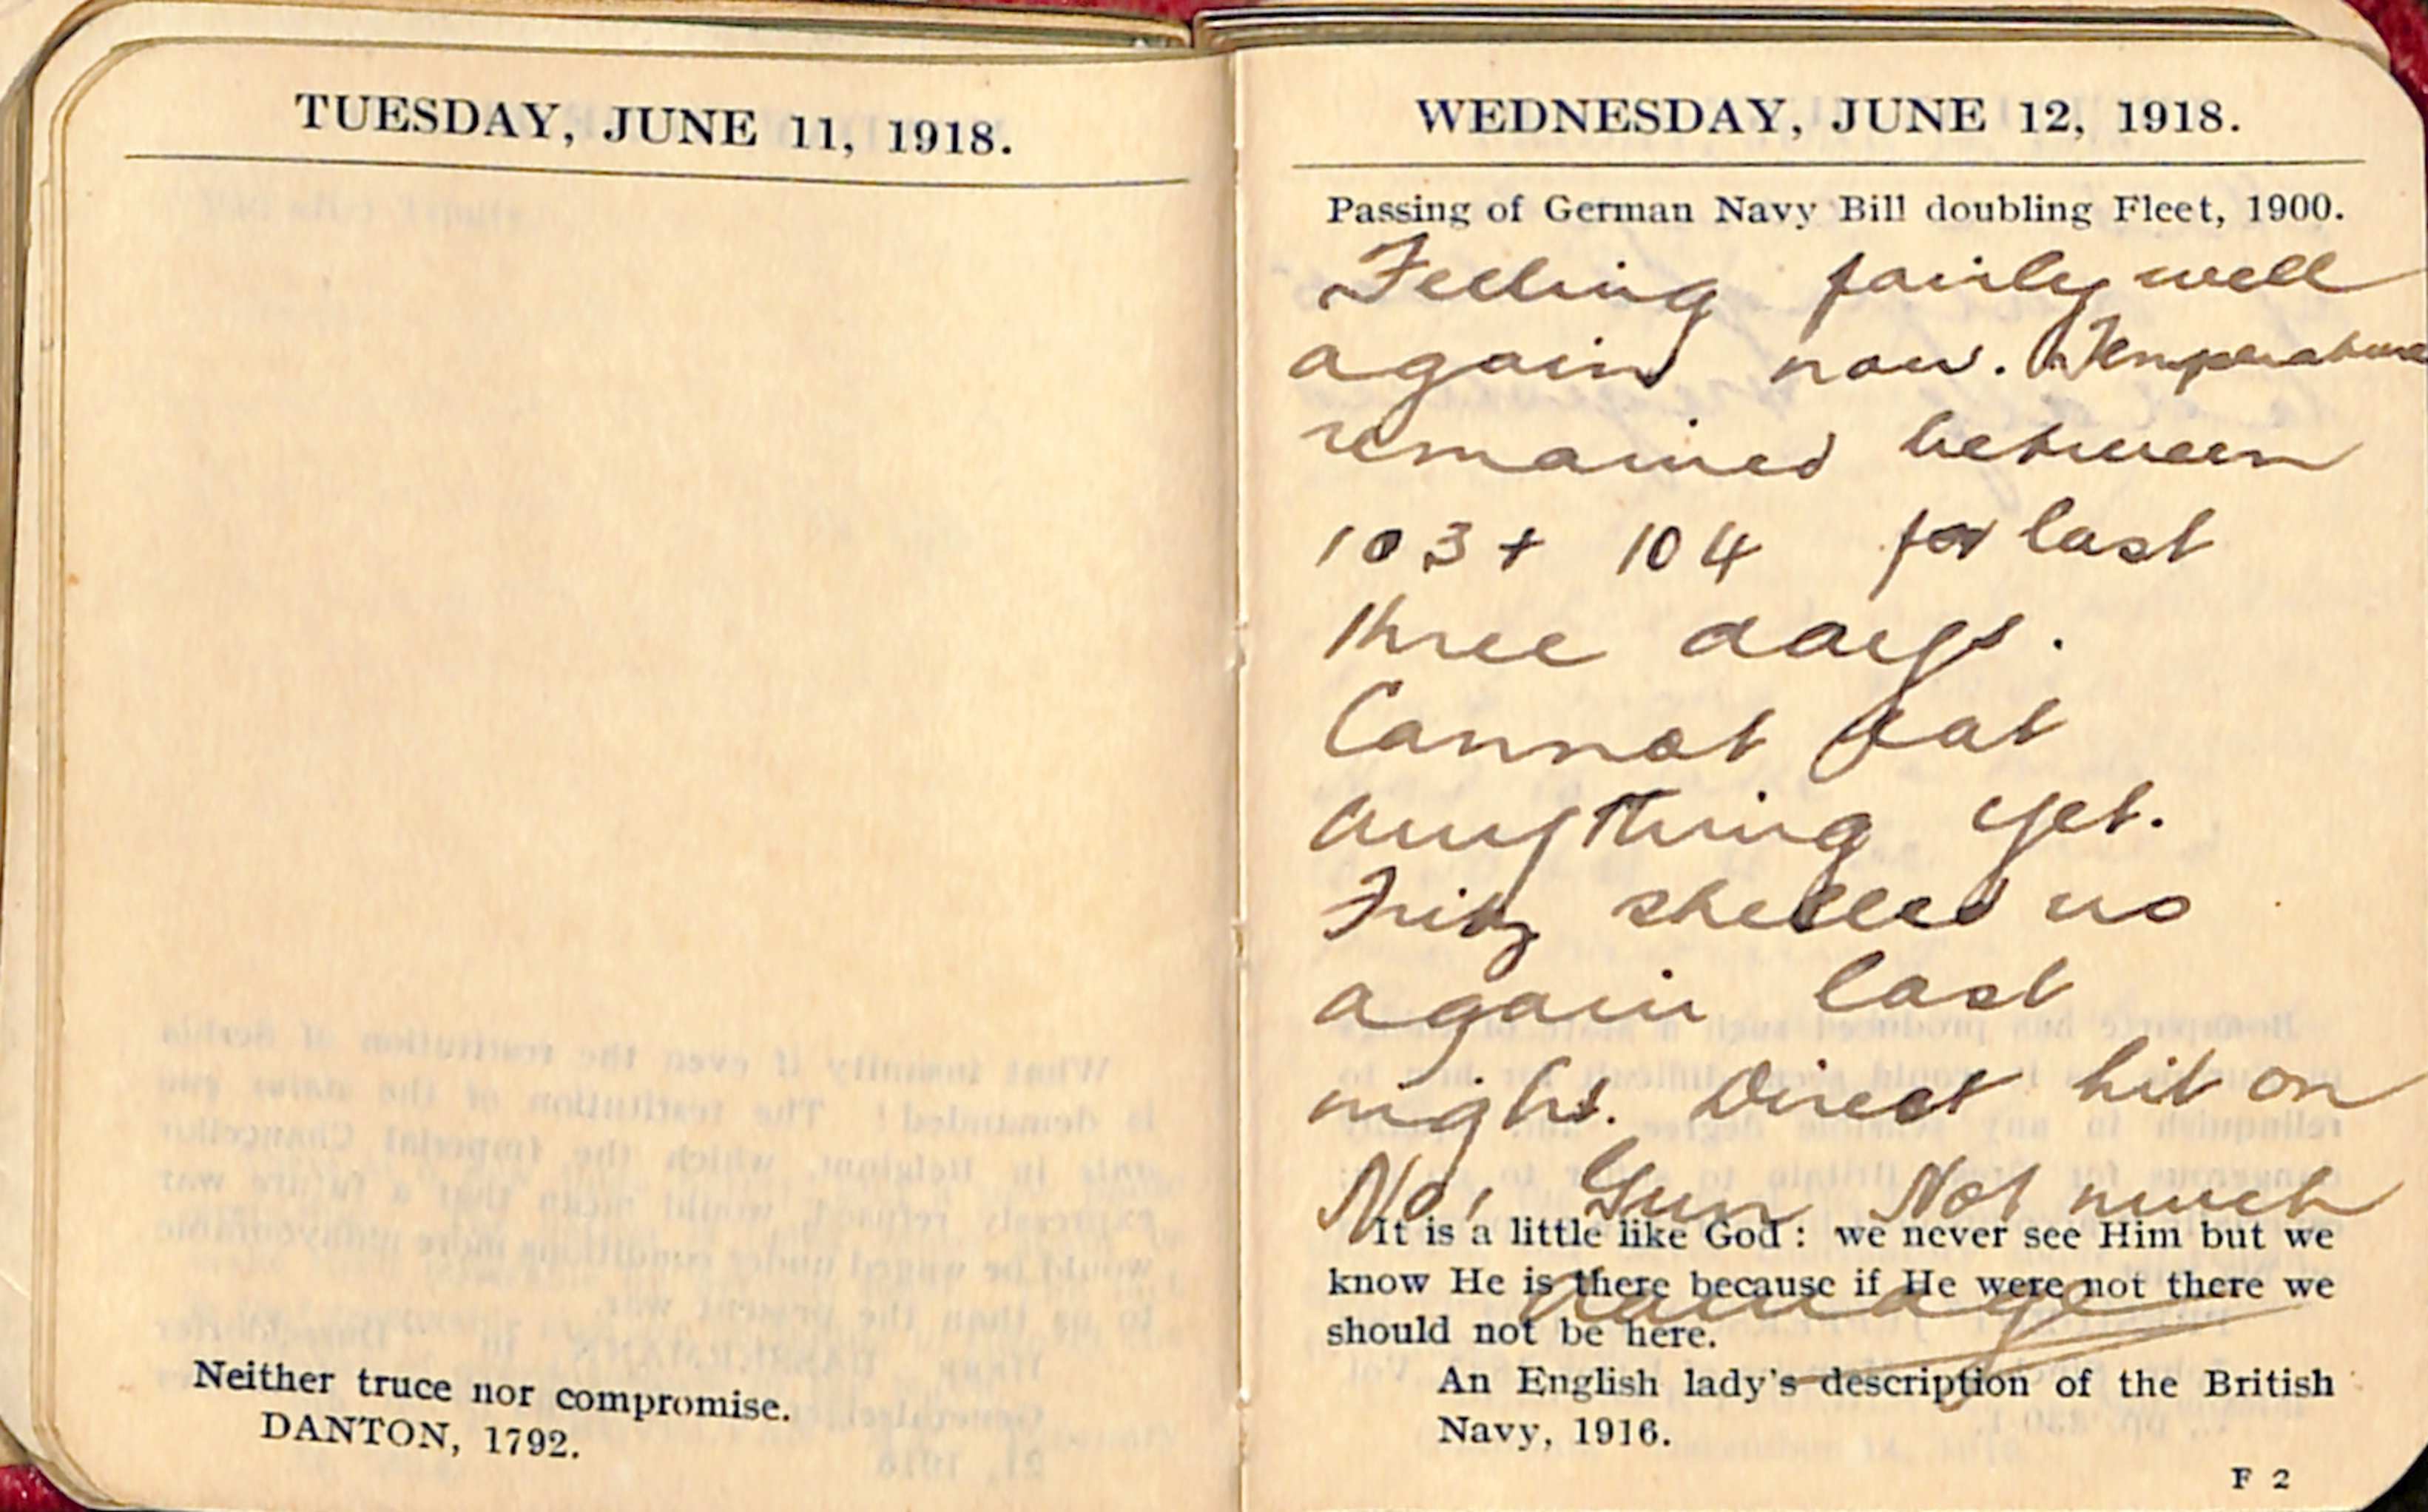 TUESDAY, JUNE 11, 1918.
Neither truce nor compromise.
DANTON, 1792.
WEDNESDAY, JUNE 12, 1918.
Passing of German Navy Bill doubling Fleet, 1900.
Feeling fairly well
again now. Temperature
remained between
103 + 104 for last
three days.
Cannot eat
anything yet.
Fritz shelled us
again last
night. Direct hit on
No 1 Gun Not much
damage
It is a little like God: we never see Him but we
know He is there because if He were not there we
should not be here.
An English lady's description of the British
Navy, 1916.
F 2